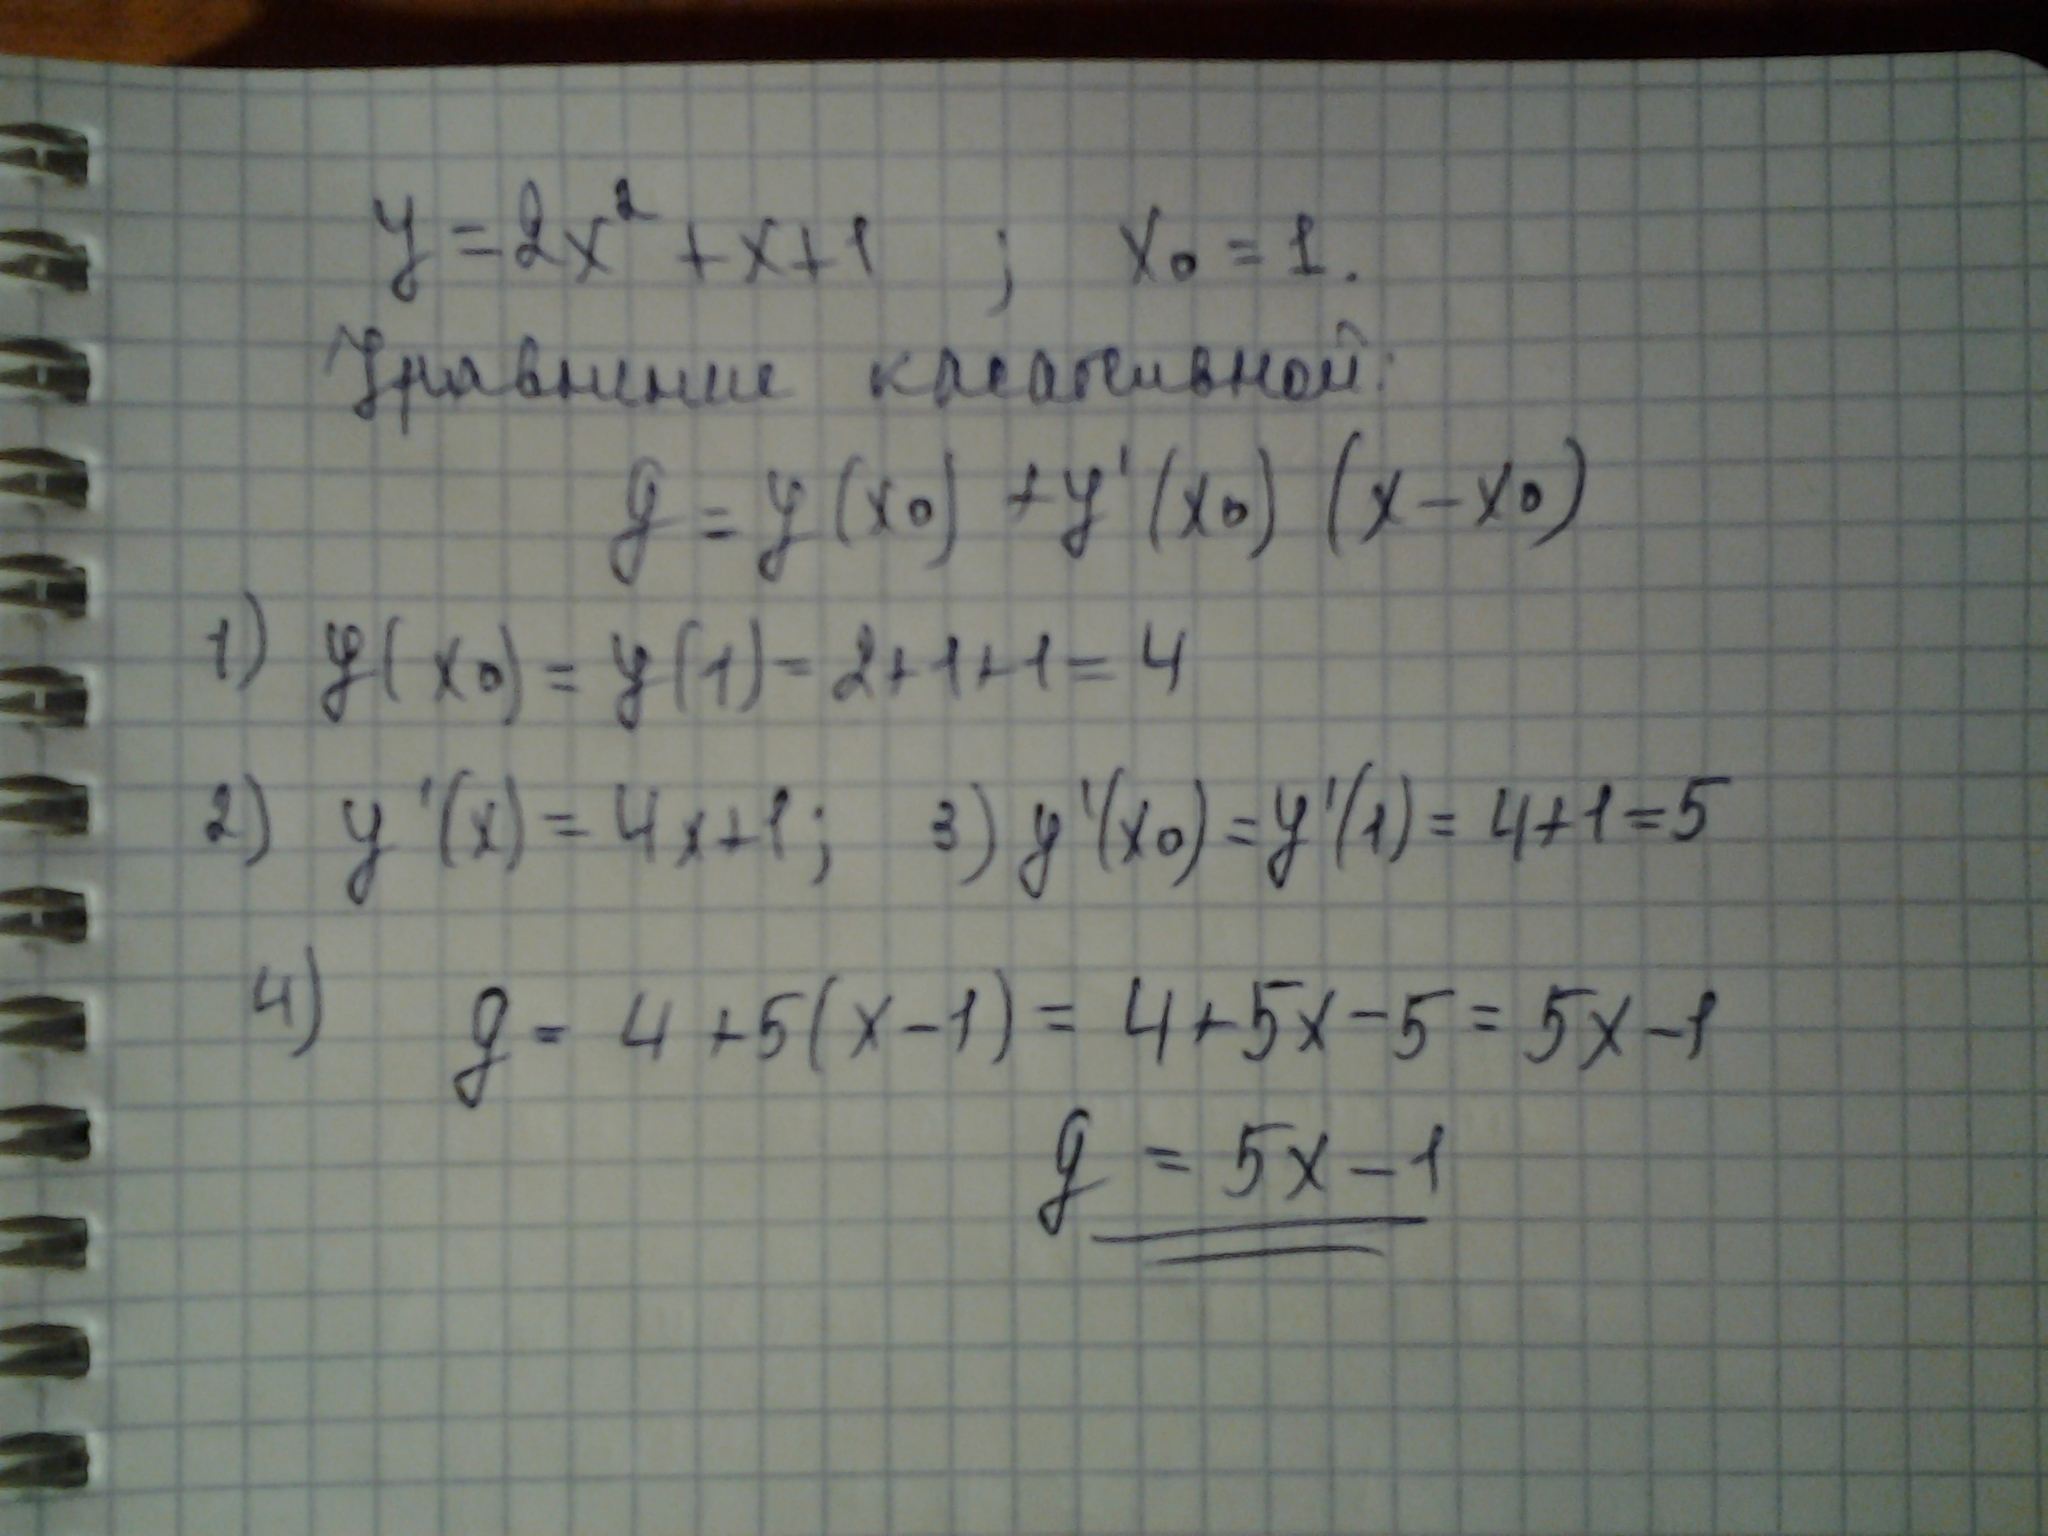 y = 2x² + x + 1 ; x₀ = 1.
Уравнение касательной:
y = y(x₀) + y'(x₀) (x − x₀)
1) y(x₀) = y(1) = 2+1+1 = 4
2) y'(x) = 4x+1; 3) y'(x₀) = y'(1) = 4+1 = 5
4) y = 4 + 5(x−1) = 4+5x−5 = 5x−1
y = 5x−1